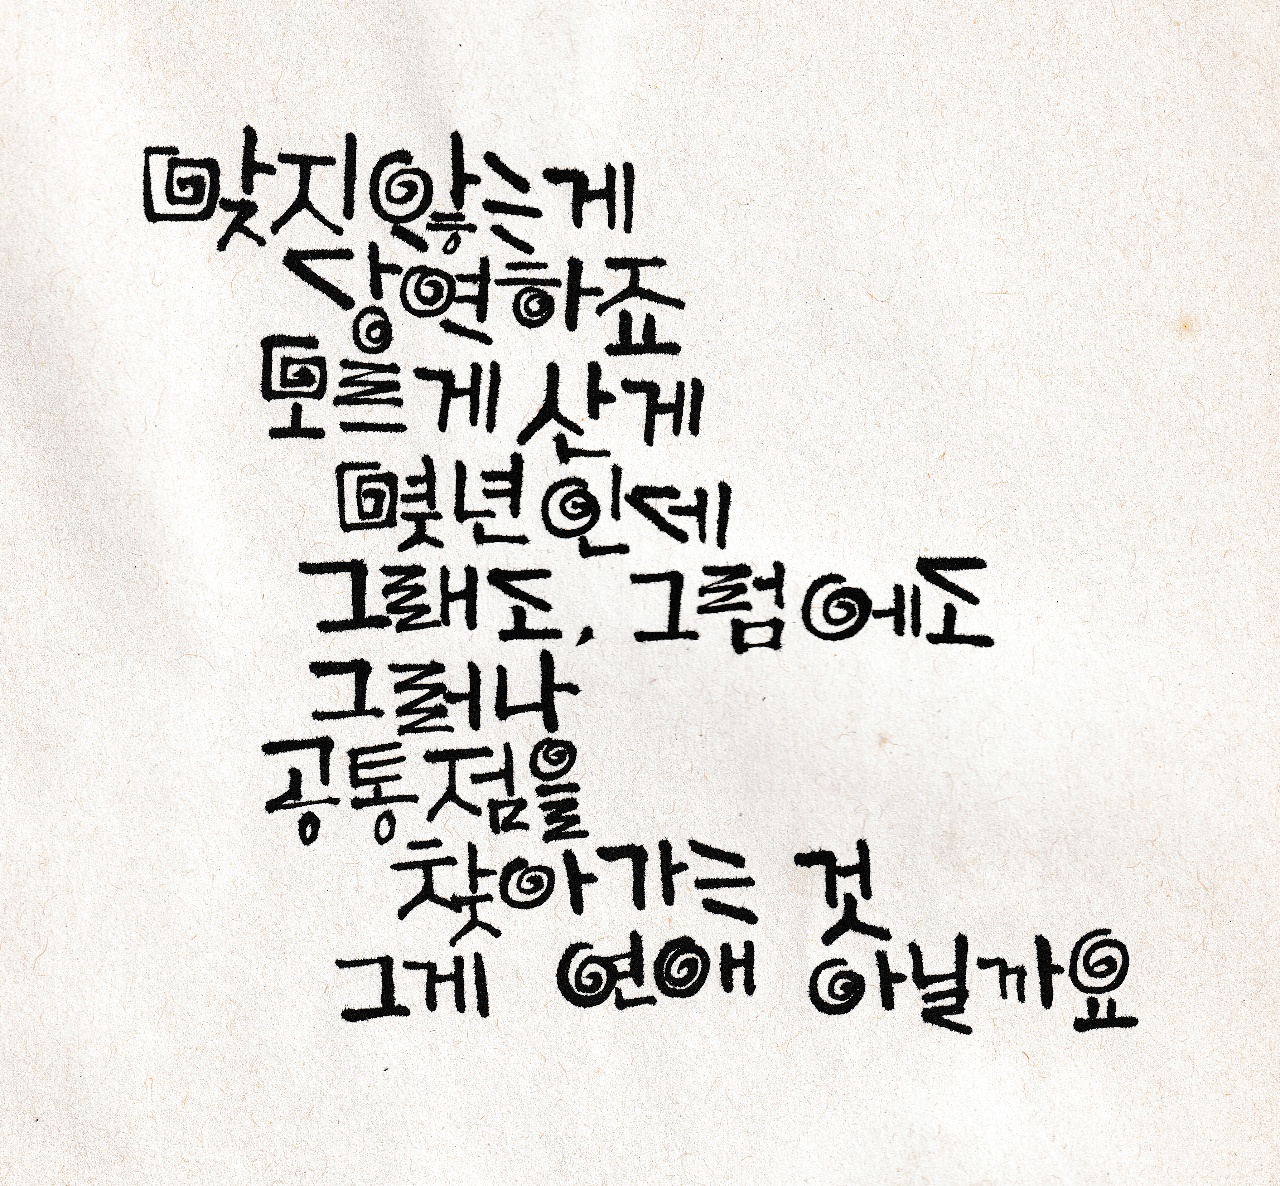 맞지 않는게
당연하죠
모르게 산게
몇년인데
그래도, 그럼에도
그러나
공통점을
찾아가는 것
그게 연애 아닐까요